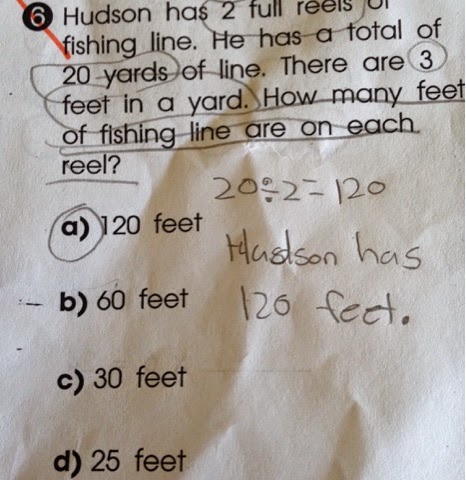 6 Hudson has 2 full reels of
fishing line. He has a total of
20 yards of line. There are 3
feet in a yard. How many feet
of fishing line are on each
reel?
20÷2=120
a) 120 feet
Hudson has
b) 60 feet
120 feet.
c) 30 feet
d) 25 feet